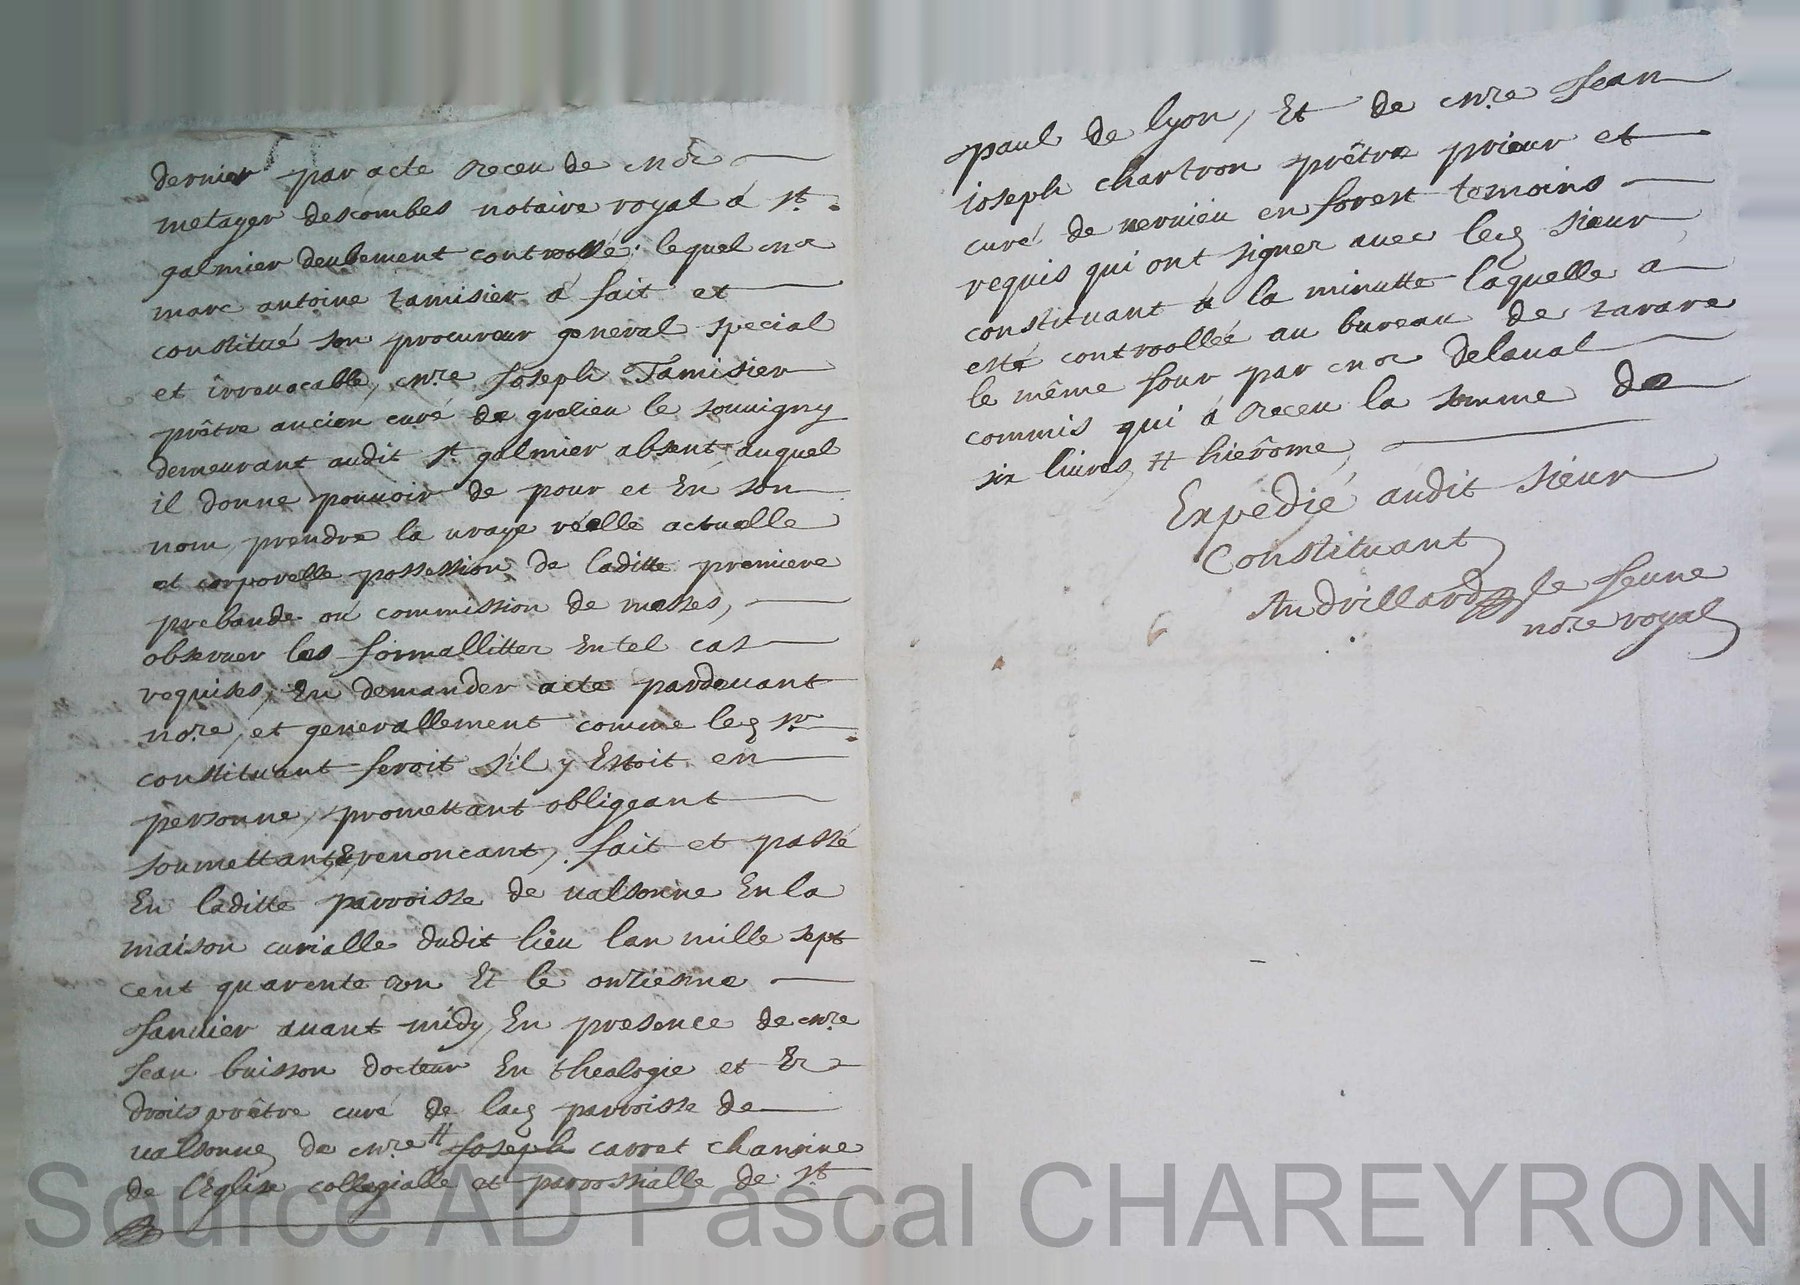 dernier par acte receu de Me
metayer descombes notaire royal á St.
galmier deubement controollé; lequel Me
marc antoine tamisier á fait et
constitué son procureur general special
et irrevacable, Mre Joseph Tamisier
prêtre ancien curé de grelieu le souvigny
demeurant audit St galmier absent auquel
il donne pouvoir de pour et En son
nom prendre la vraye réelle actuelle
et corporelle possession de laditte premiere
prebande ou commission de messes,
observer les formallittez En tel cas
requises, En demander acte pardevant
nore, et generallement comme led Sr
constituant feroit s'il y Estoit en
personne, promettant obligeant
soumettant & renoncant, fait et passé
En laditte parroisse de valsonne En la
maison curialle dudit lieu lan mille sept
cent quarente un Et le onziesme
Janvier avant midy, En presence de Mre
Jean buisson docteur En thealogie et Ez
droits prêtre curé de lad parroisse de
valsonne de Mre # Joseph carret chanoine
de l'Eglise collegialle et parrossialle de St
paul de lyon, Et de Mre Jean
ioseph chartron prêtre prieur et
curé de nervieu en forest temoins
requis qui ont signez avec led sieur
constituant á la minutte laquelle a
esté controollée au bureau de tarare
le même Jour par Me delaval
commis qui á receu la somme de
six livres, # hierôme,
Expedié audit sieur
Constituant
Andrillard le Jeune
nore royal
Source AD Pascal CHAREYRON